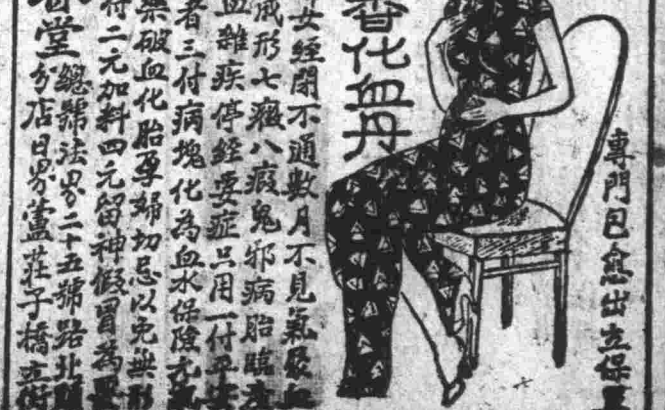 專門包愈出立保
香化血丹
女經閉不通數月不見氣聚血
成形七癥八瘕鬼邪病胎臌
血雜疾停經要症只用一付
者三付病塊化為血水保險
藥破血化胎孕婦切忌以免無形
付二元加料四元留神假冒為
堂總號法界二十五號路北
分店日界蘆莊子橋立街